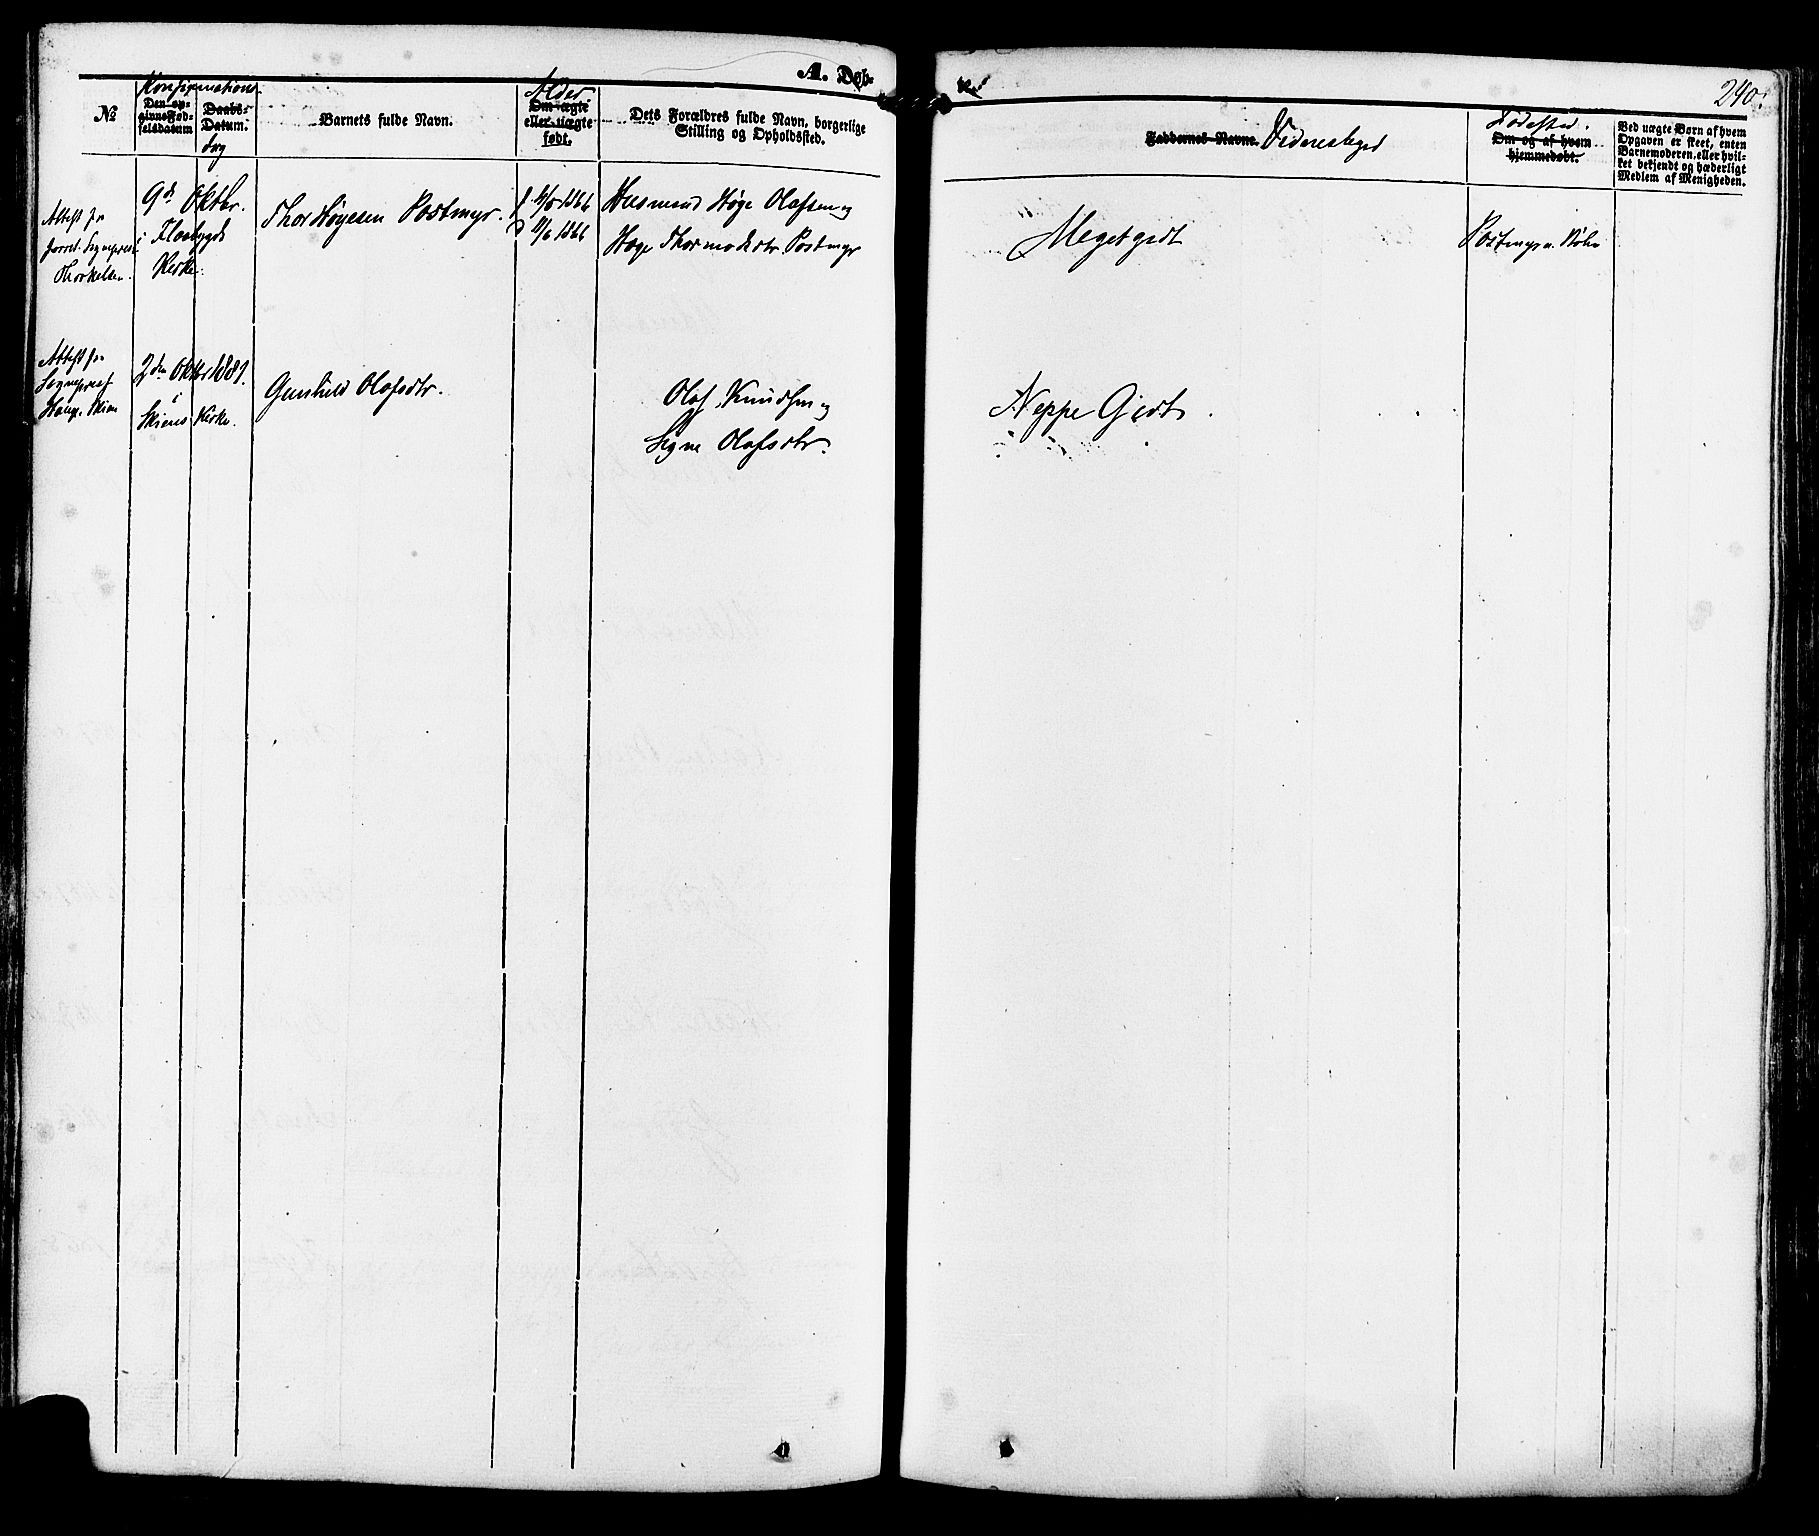 A. Døb-
te.
240.
Konfirmations
Alder
Vidnesbyrd
Fødested.
№
Den op-
givne Fød-
selsdatum
Daabs-
Datum.
dag
Barnets fulde Navn.
Om ægte
eller uægte
født.
Dets Forældres fulde Navn, borgerlige
Stilling og Opholdssted.
Faddernes Navne.
Om og af hvem
hjemmedøbt.
Ved uægte Børn af hvem
Opgaven er skeet, enten
Barnemoderen, eller hvil-
ket bekjendt og hæderligt
Medlem af Menigheden.
Attest fra
Sognepræst
Thorkelsen.
9d Oktbr.
i Flaabygds
Kirke.
Thor Høgesen Postmyr.
f 11/5 1866
D 11/6 1866
Husmand Høge Olafsen og
Hæge Thormodsdtr. Postmyr
Megetgodt
Postmyr
Attest fra
Sognepræst
Skien
2den Oktbr 1881.
i
Skiens Kirke.
Gunhild Olafsdtr.
Olaf Knudsen og
Signe Olafsdtr.
Neppe Godt